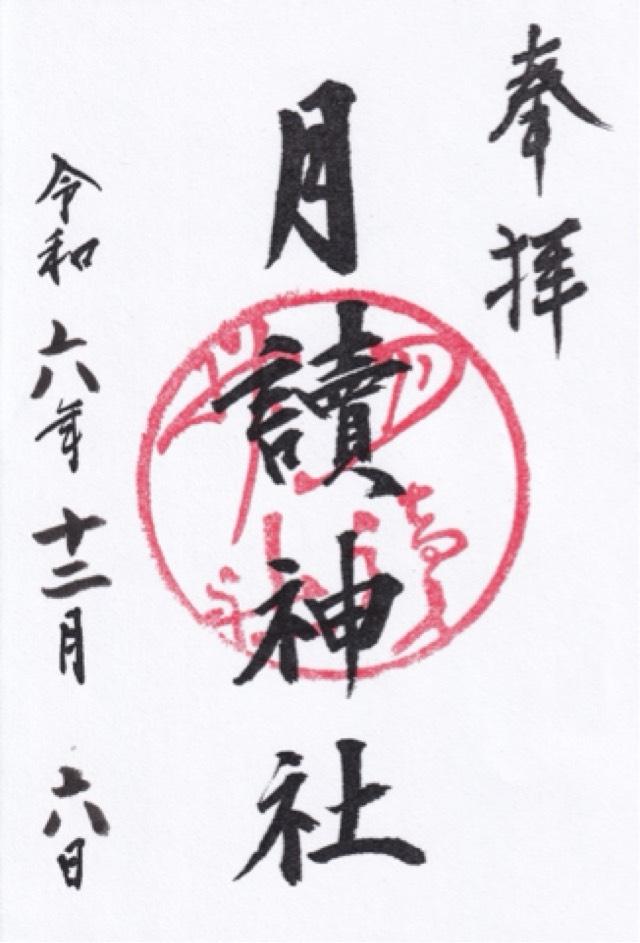 奉拝
月讀神社
令和六年十二月六日